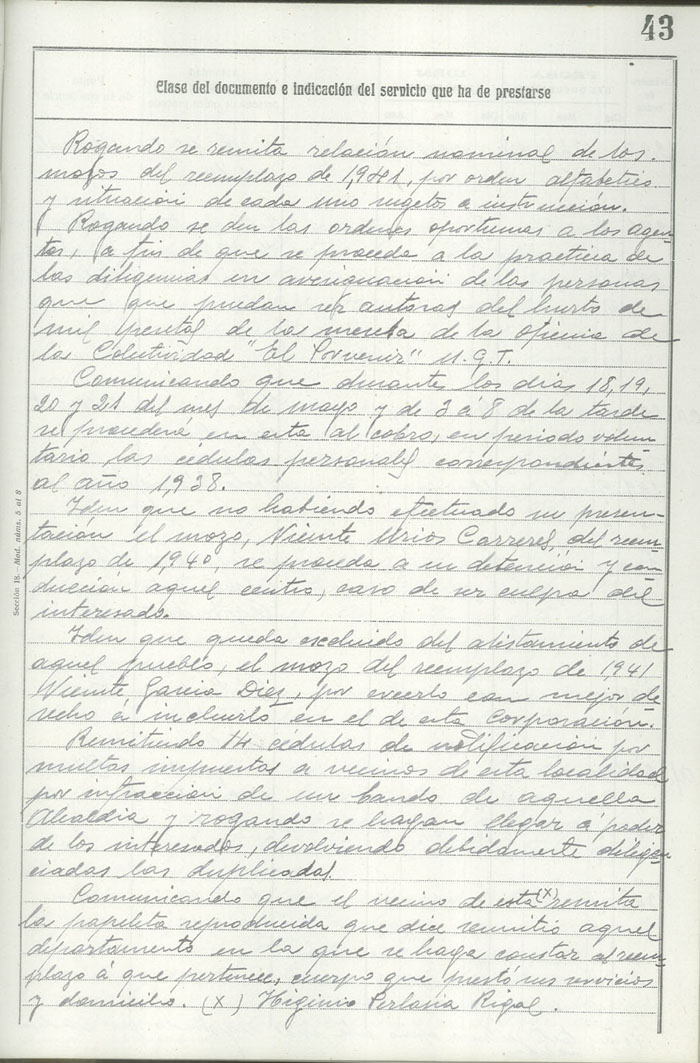 43
Clase del documento e indicación del servicio que ha de prestarse
Rogando se remita relación nominal de los
mozos del reemplazo de 1,941, por orden alfabetico
y situacion de cada uno sugetos a instrucción.
Rogando se den las ordenes oportunas a los agen-
tes, a fin de que se proceda a la practica de
las diligencias en averiguacion de las personas
que que puedan ser autoras del hurto de
mil pesetas de la mesita de la oficina de
la Colectividad "El Porvenir" U.G.T.
Comunicando que durante los dias 18, 19,
20 y 21 del mes de mayo y de 3 a 8 de la tarde
se procederá en esta al cobro, en periodo volun
tario las cédulas personales correspondientes
al año 1,938.
Iden que no habiendo efectuado su presen-
tación el mozo, Vicente Urios Carreres, del reem-
plazo de 1,940, se proceda a su detencion y con
duccion aquel centro, caso de ser culpa del
interesado.
Iden que queda excluido del alistamiento de
aquel pueblo, el mozo del reemplazo de 1,941
Vicente Garcia Diez, por creerlo con mejor de
recho á incluirlo en el de esta Corporación.
Remitiendo 14 cédulas de notificacion por
multas impuestas a vecinos de esta localidad
por infraccion de un bando de aquella
Alcaldia y rogando se hagan llegar á poder
de los interesados, devolviendo debidamente diligen
ciadas las duplicadas.
Comunicando que el vecino de esta (X) remita
la papeleta reproducida que dice remitió aquel
departamento en la que se haga constar el reem-
plazo á que pertenece, cuerpo que prestó sus servicios
y domicilio. (X) Higinio Perlasia Rigal.
Sección 18.—Mod. núms. 5 al 8